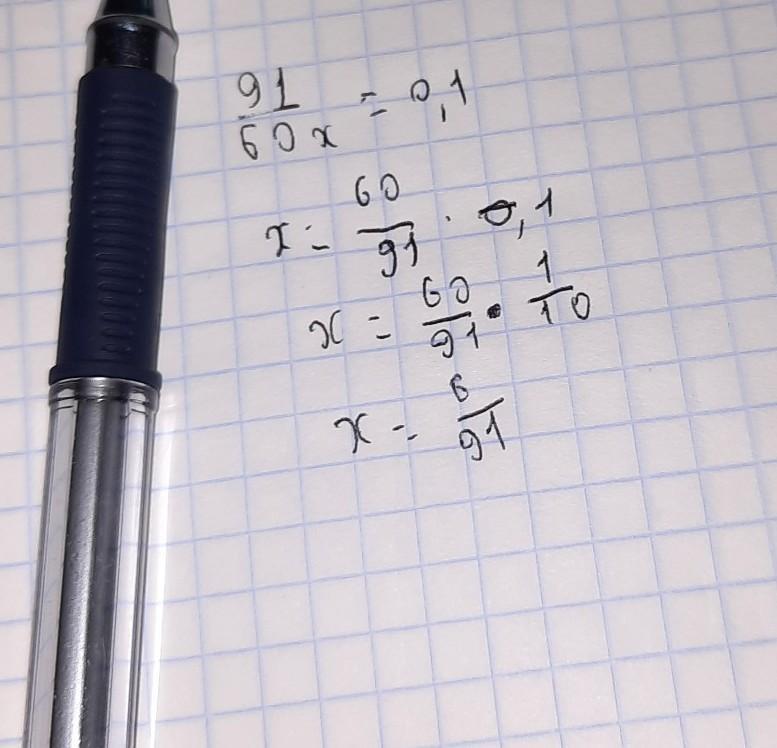 91/60 x = 0,1
x = 60/91 · 0,1
x = 60/91 · 1/10
x = 6/91